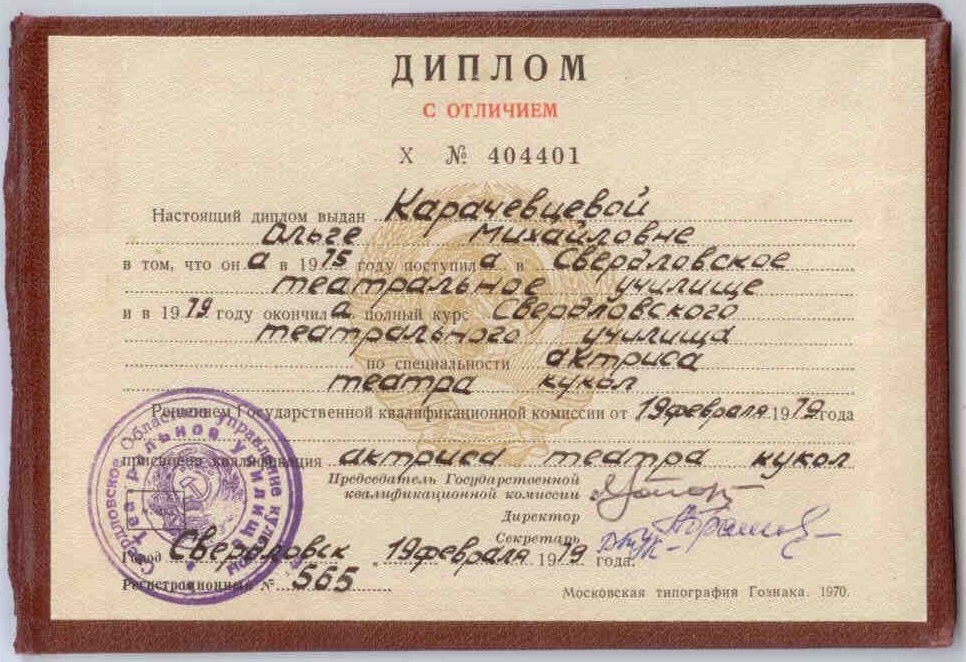 ДИПЛОМ
С ОТЛИЧИЕМ
Х № 404401
Настоящий диплом выдан Карачевцевой
Ольге Михайловне
в том, что он а в 1975 году поступил а в Свердловское
театральное училище
и в 1979 году окончил а полный курс Свердловского
театрального училища
по специальности актриса
театра кукол
Решением Государственной квалификационной комиссии от 19 февраля 1979 года
присвоена квалификация актриса театра кукол
Председатель Государственной
квалификационной комиссии
Директор
Секретарь
Город Свердловск 19 февраля 1979 года.
Регистрационный № 565
Московская типография Гознака. 1970.
Свердловское Областное Управление культуры
Театральное училище